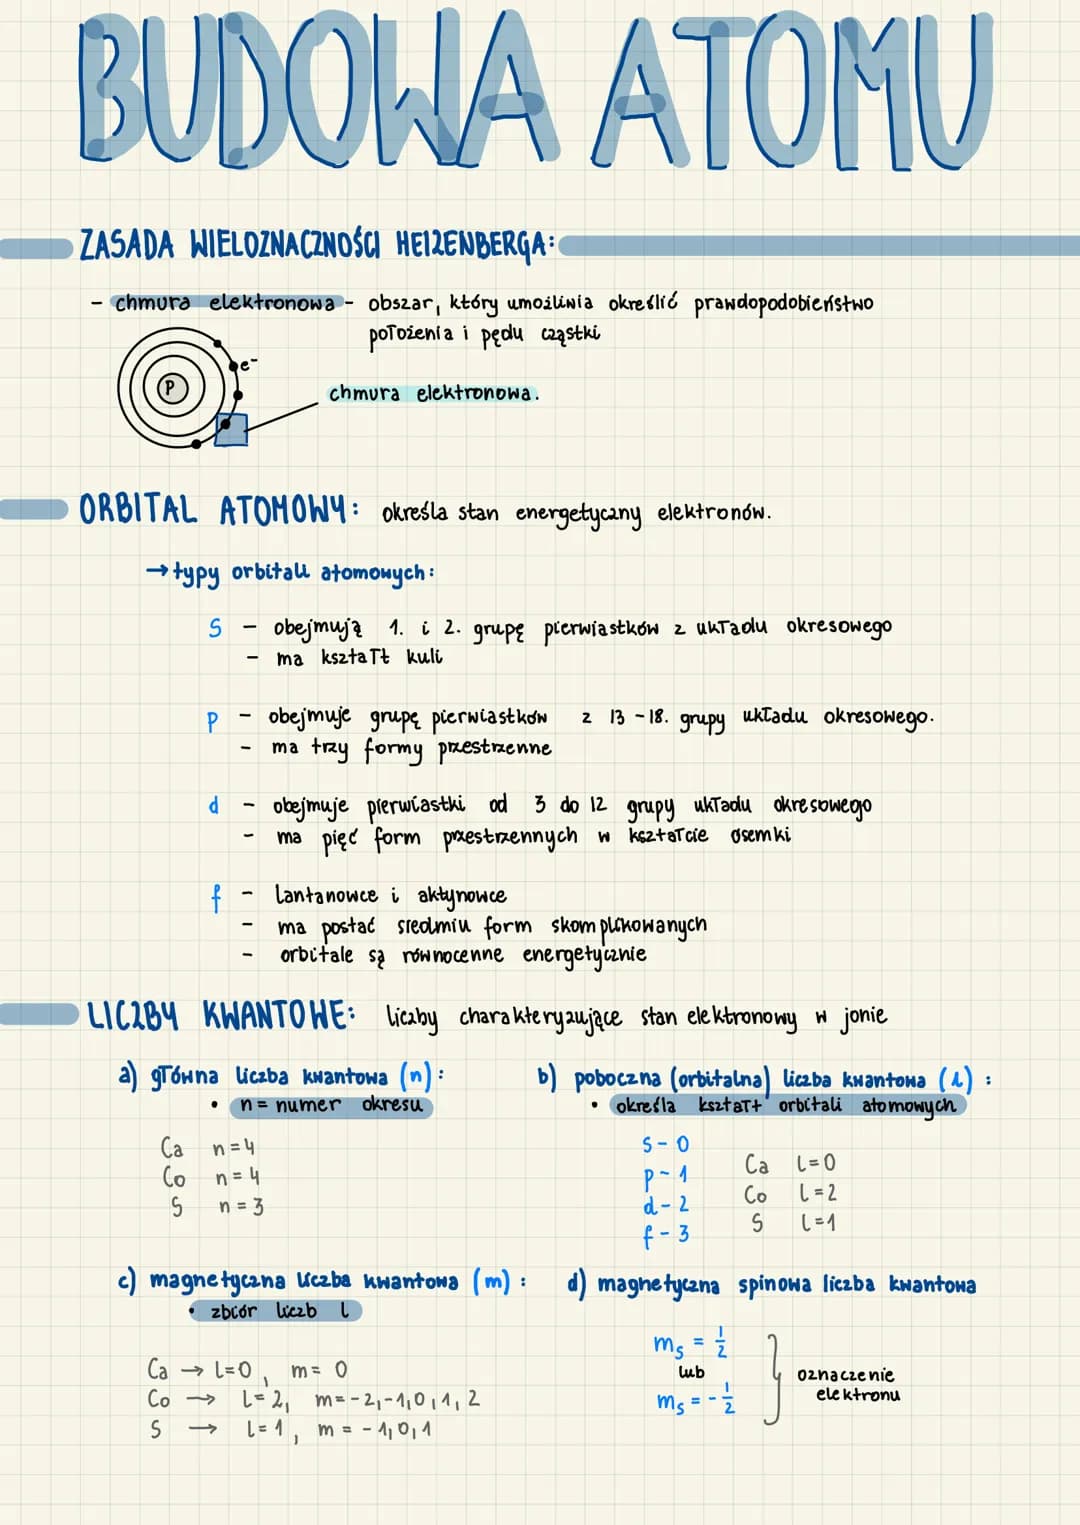 BUDOWA ATOMU
ZASADA WIELOZNACZNOŚCI HEIZENBERGA:
- chmura elektronowa - obszar, który umożliwia określić prawdopodobieństwo
położenia i pędu cząstki
e⁻
P
chmura elektronowa.
ORBITAL ATOMOWY: określa stan energetyczny elektronów.
→ typy orbitali atomowych:
S - obejmują 1. i 2. grupę pierwiastków z układu okresowego
- ma kształt kuli
p - obejmuje grupę pierwiastków z 13-18. grupy układu okresowego.
- ma trzy formy przestrzenne
d - obejmuje pierwiastki od 3 do 12 grupy układu okresowego
- ma pięć form przestrzennych w kształcie ósemki
f - lantanowce i aktynowce
- ma postać siedmiu form skomplikowanych
- orbitale są równocenne energetycznie
LICZBY KWANTOWE: liczby charakteryzujące stan elektronowy w jonie
a) główna liczba kwantowa (n):
• n = numer okresu
Ca n=4
Co n=4
S n=3
b) poboczna (orbitalna) liczba kwantowa (l):
• określa kształt orbitali atomowych
s - 0
p - 1
d - 2
f - 3
Ca l=0
Co l=2
S l=1
c) magnetyczna liczba kwantowa (m):
• zbiór liczb l
Ca → l=0, m= 0
Co → l=2, m=-2,-1,0,1,2
S → l=1, m = -1,0,1
d) magnetyczna spinowa liczba kwantowa
mₛ = 1/2
lub
mₛ = - 1/2
oznaczenie
elektronu